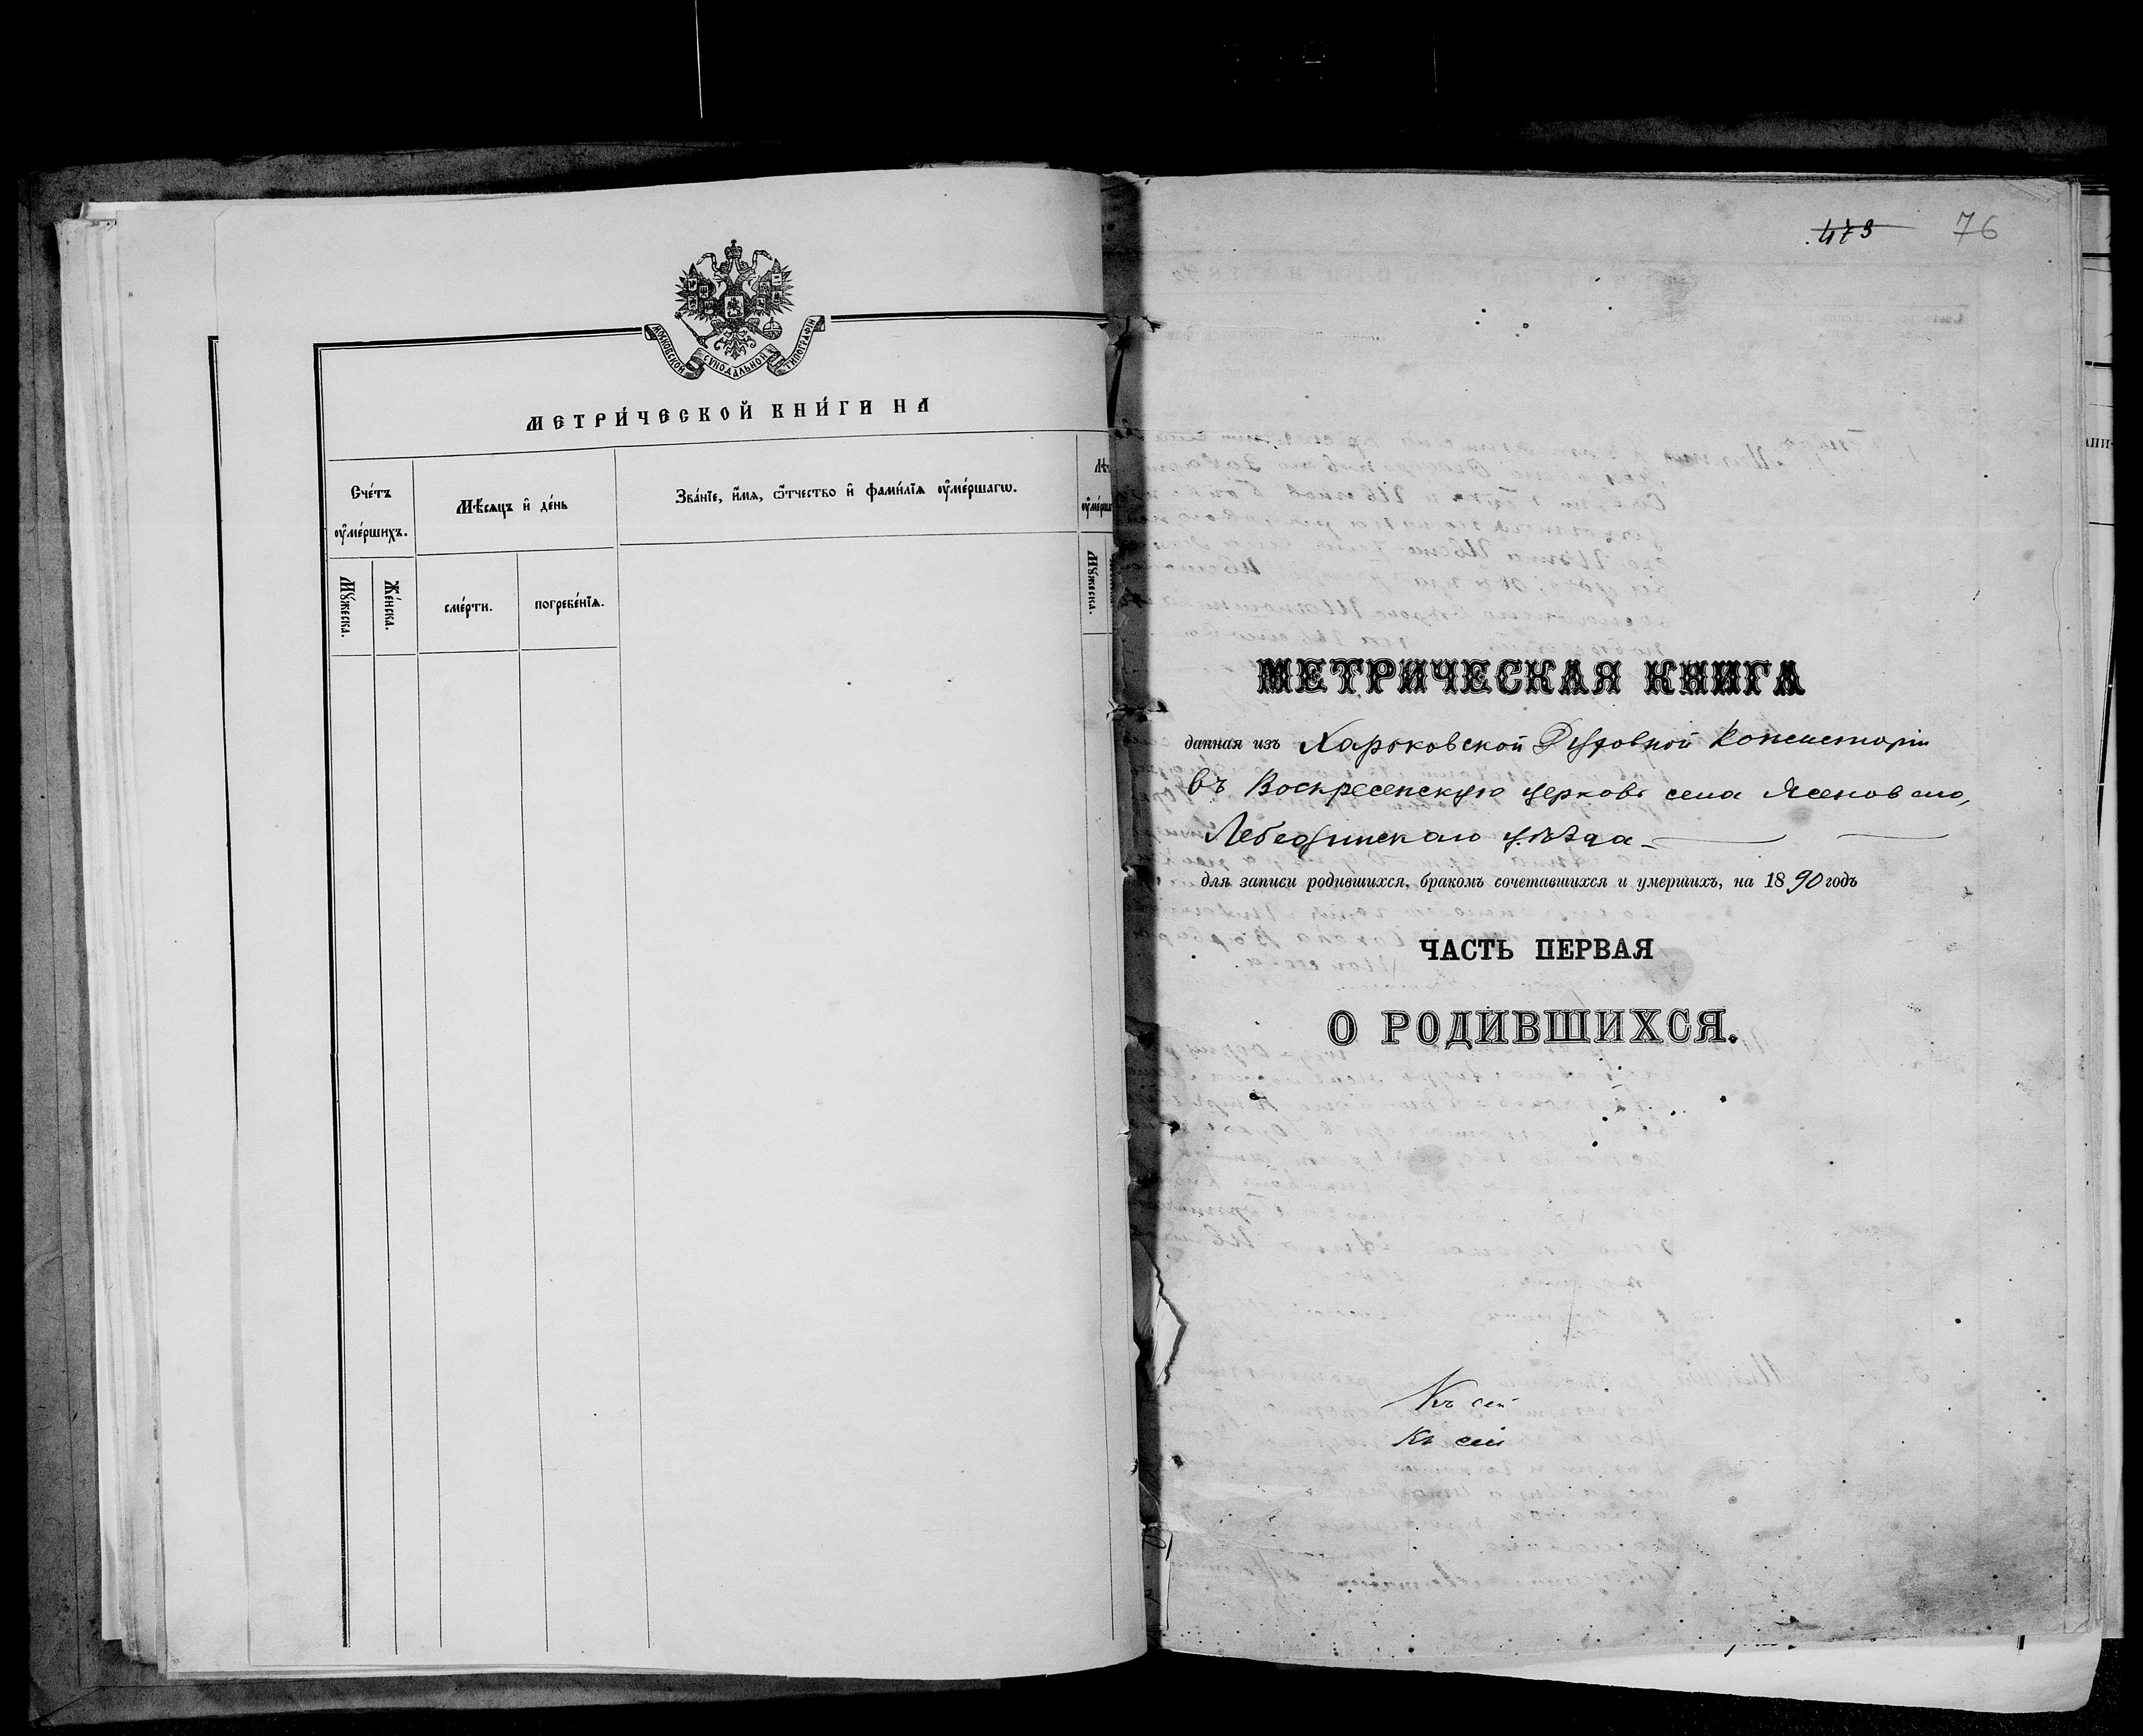 МОСКОВСКОЙ СУНОДАЛЬНОЙ ТИПОГРАФІИ
МЕТРИ́ЧЕСКОЙ КНИ́ГИ НА
Сче́тъ ᲂу҆ме́ршихъ.
Мѣ́сяцъ и҆ де́нь
Зва́нїе, и҆́мѧ, ѻ҆́тчество и҆ фами́лїѧ ᲂу҆ме́ршагѡ.
Мꙋ́жеска.
Же́нска.
сме́рти.
погребе́нїѧ.
Мꙋ́жеска.
473 76
МЕТРИЧЕСКАЯ КНИГА
данная изъ Харьковской Духовной Консисторіи
въ Воскресенскую церковь села Ясеноваго,
Лебединскаго уѣзда
для записи родившихся, бракомъ сочетавшихся и умершихъ, на 1890 годъ
ЧАСТЬ ПЕРВАЯ
О РОДИВШИХСЯ.
Къ сей
Къ сей